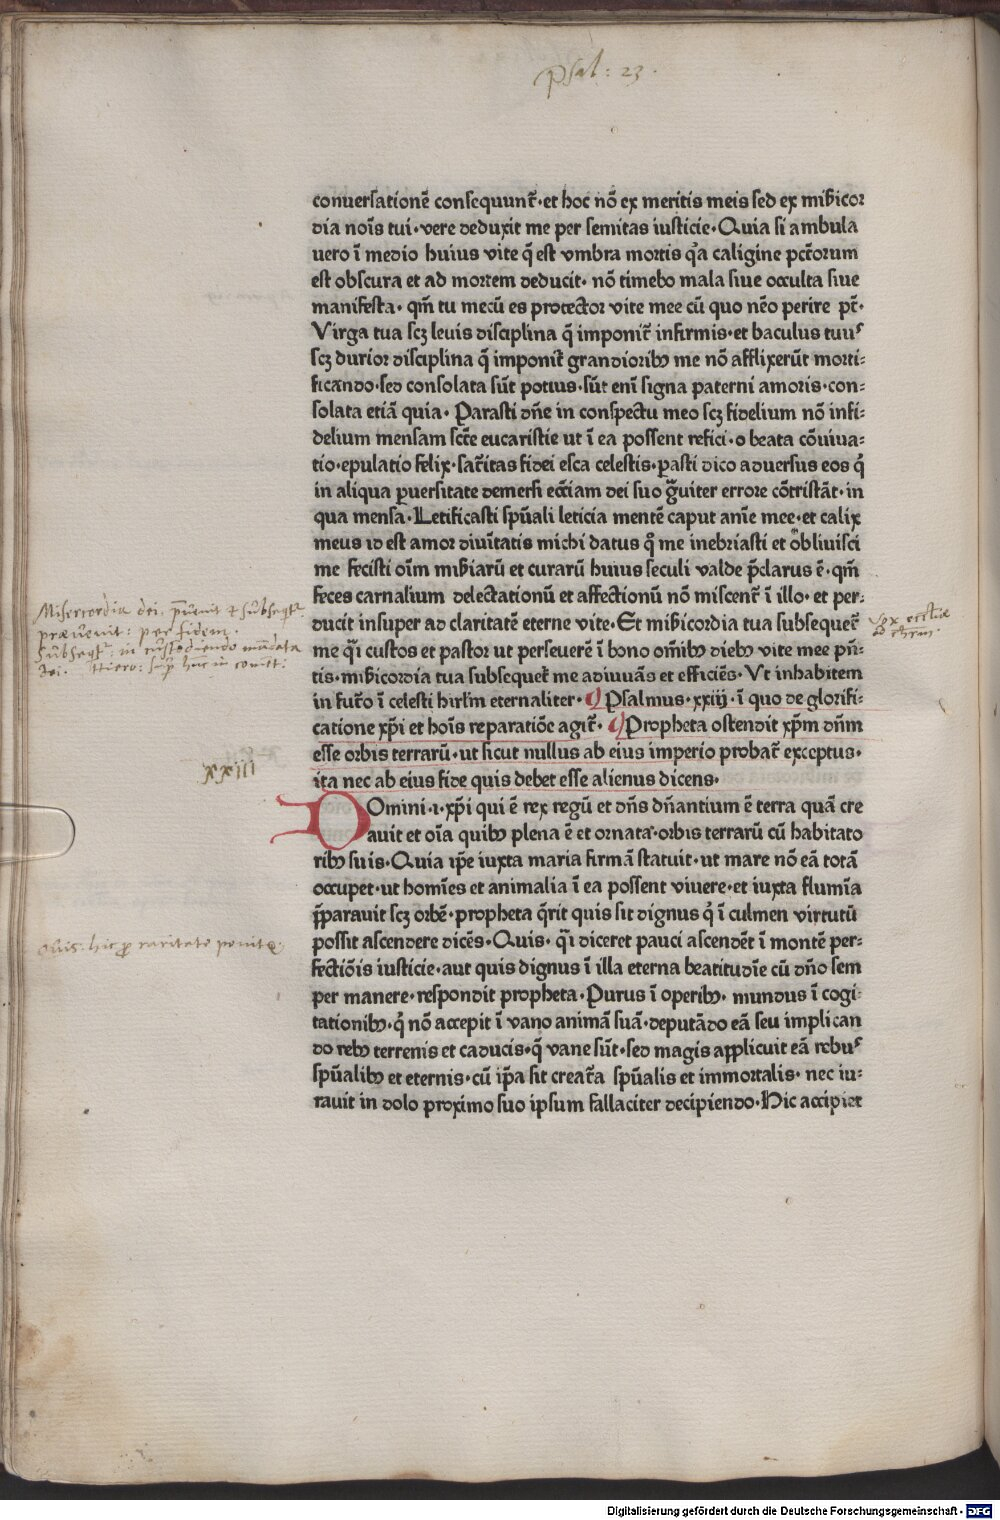 Psal: 23.
conuersationē consequunt̄·et hoc nō ex meritis meis sed ex mīsericor
dia noīs tui·vere deduxit me per semitas iusticie·Quia si ambula
uero ī medio huius vite q̄ est vmbra mortis qͣa caligine pctōrum
est obscura et ad mortem deducit· nō timebo mala siue occulta siue
manifesta· qm̄ tu mecū es protector vite mee cū quo nēo perire pt̄·
Virga tua scꝫ leuis disciplina q̄ imponit̄ infirmis·et baculus tuuꝰ
scꝫ durior disciplina q̄ imponit̄ grandioribꝫ me nō afflixerūt morti⸗
ficando·sed consolata sūt potius·sūt enī signa paterni amoris·con⸗
solata etiā quia· Parasti dn̄e in conspectu meo scꝫ fidelium nō infi⸗
delium mensam sctē eucaristie ut ī ea possent refici·o beata cōuiua⸗
tio·epulatio felix·sac̄itas fidei esca celestis·parasti dico aduersus eos qͥ
in aliqua ꝑuersitate demersi ecc̄iam dei suo gͣuiter errore cōtristāt·in
qua mensa·Letificasti spūali leticia mentē caput anīe mee·et calix
meus id est amor diuītatis michi datus qͦ me inebriasti et obliuisci
me fecisti oīm mībiarū et curarū huius seculi valde p̄clarus ē·qm̄
feces carnalium delectationū et affectionū nō miscent̄ ī illo·et per⸗
ducit insuper ad claritatē eterne vite·Et mīsericordia tua subsequet̄
me qͣi custos et pastor ut perseuerē ī bono om̄ibꝫ diebꝫ vite mee pn̄⸗
tis·mīsericordia tua subsequet̄ me adiuuās et efficiēs·Vt inhabitem
in futō ī celesti hirlm̄ eternaliter·¶ Psalmus·xxiij·ī quo de glorifi⸗
catione xp̄i et hoīs reparatiōe agit̄·¶Propheta ostendit xp̄m dn̄m
esse orbis terrarū·ut sicut nullus ab eius imperio probat̄ exceptus·
ita nec ab eius fide quis debet esse alienus dicens·
DOmini·i·xp̄i qui ē rex regū et dn̄s dn̄antium ē terra quā cre
auit et oīa quibꝫ plena ē et ornata·orbis terrarū cū habitato
ribꝫ suis·Quia ip̄e iuxta maria firmā statuit·ut mare nō eā totā
occupet·ut homīes et animalia ī ea possent viuere·et iuxta flumīa
p̄parauit scꝫ orbē·propheta q̄rit quis sit dignus qͥ ī culmen virtutū
possit ascendere dicēs·Quis·qͣi diceret pauci ascendēt ī montē per⸗
fectiōis iusticie·aut quis dignus ī illa eterna beatitudīe cū dn̄o sem
per manere·respondit propheta·Purus ī operibꝫ·mundus ī cogi⸗
tationibꝫ·qͥ nō accepit ī vano animā suā·deputādo eā seu implican
do rebꝫ terrenis et caducis·q̄ vane sūt·sed magis applicuit eā rebuꝰ
spūalibꝫ et eternis·cū ip̄a sit creat̄a spūalis et immortalis· nec iu⸗
rauit in dolo proximo suo ipsum fallaciter decipiendo·Hic accipiet
Misericordia dei. p̄uenit & subseqt̄ᷣ
præuenit: per fidem.
Subseqt̄ᷣ: in custodiendo mādata
dei. Hiero: sup̄ hūc
vox ecclīæ
ad chrm̄.
XXIII
Quis. hic ꝓ raritate ponitᷣ.
Digitalisierung gefördert durch die Deutsche Forschungsgemeinschaft - DFG